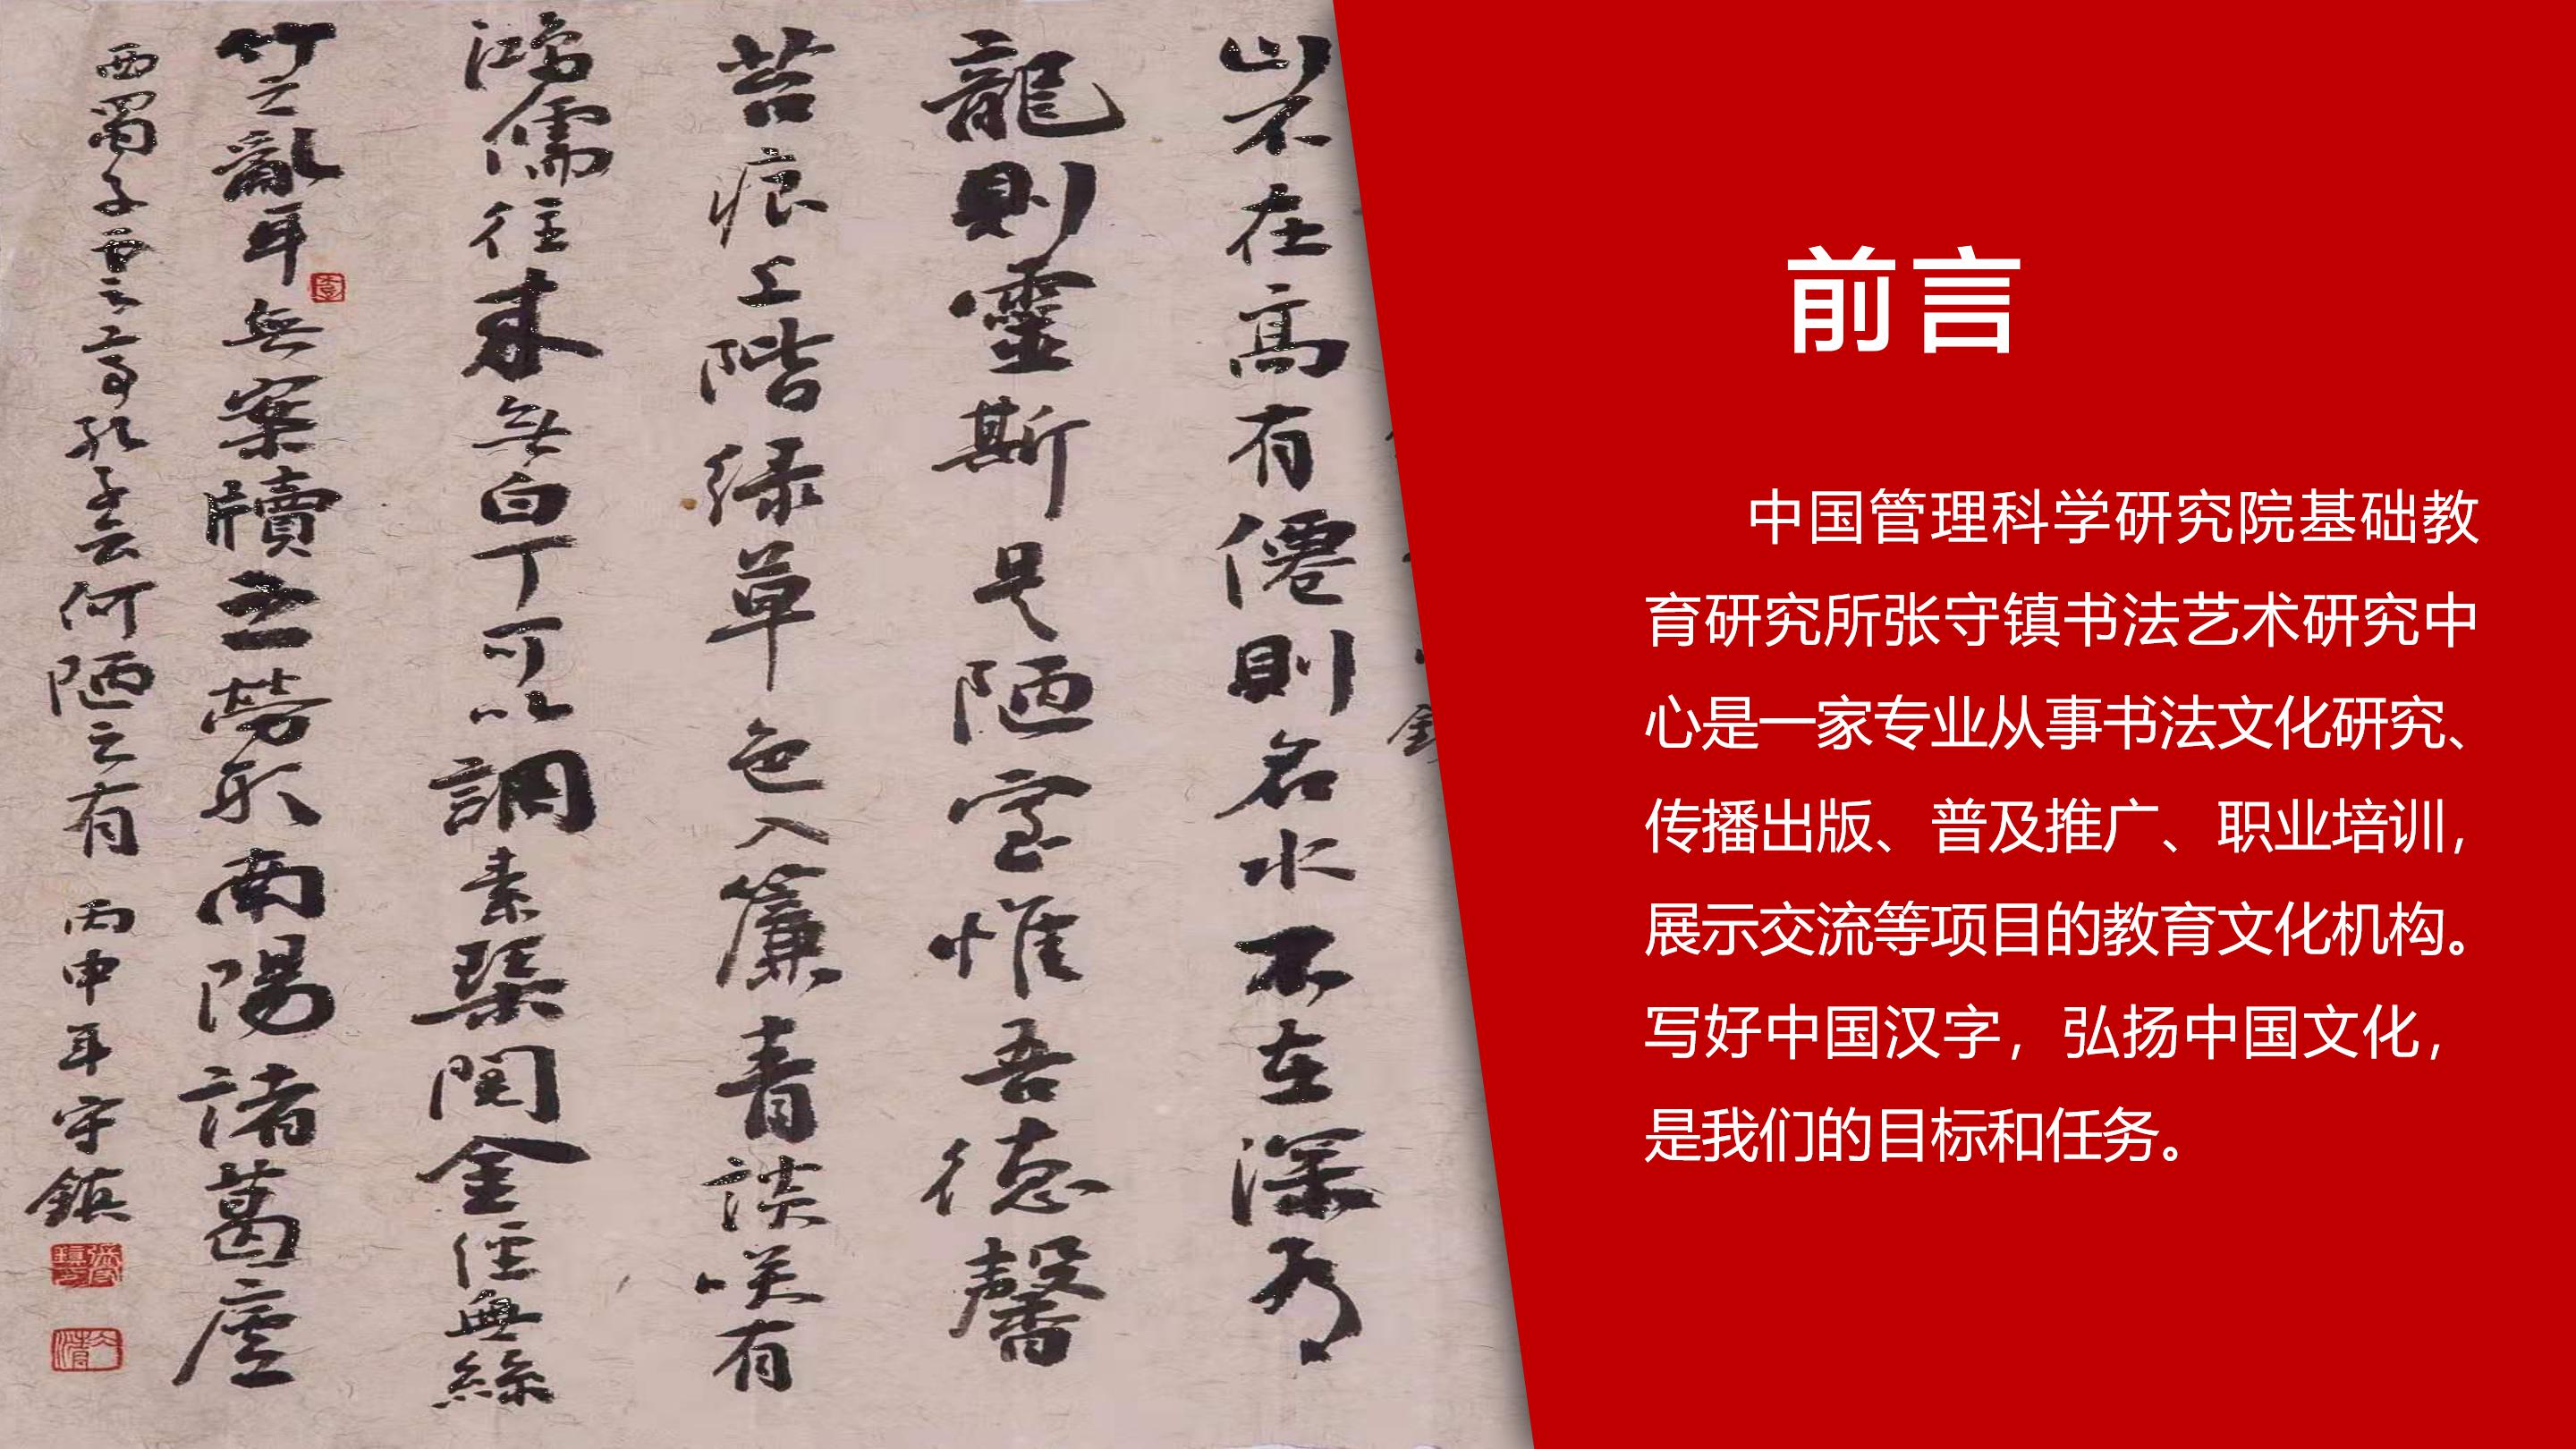 山不在高有僊則名水不在深有
龍則靈斯是陋室惟吾德馨
苔痕上階緑草色入簾青談咲有
鴻儒往来無白丁可以調素琴閲金經無絲
竹之亂耳無案牘之勞形南陽諸葛廬
西蜀子雲之亭孔子云何陋之有 丙申年守鎮
前言
中国管理科学研究院基础教
育研究所张守镇书法艺术研究中
心是一家专业从事书法文化研究、
传播出版、普及推广、职业培训，
展示交流等项目的教育文化机构。
写好中国汉字，弘扬中国文化，
是我们的目标和任务。